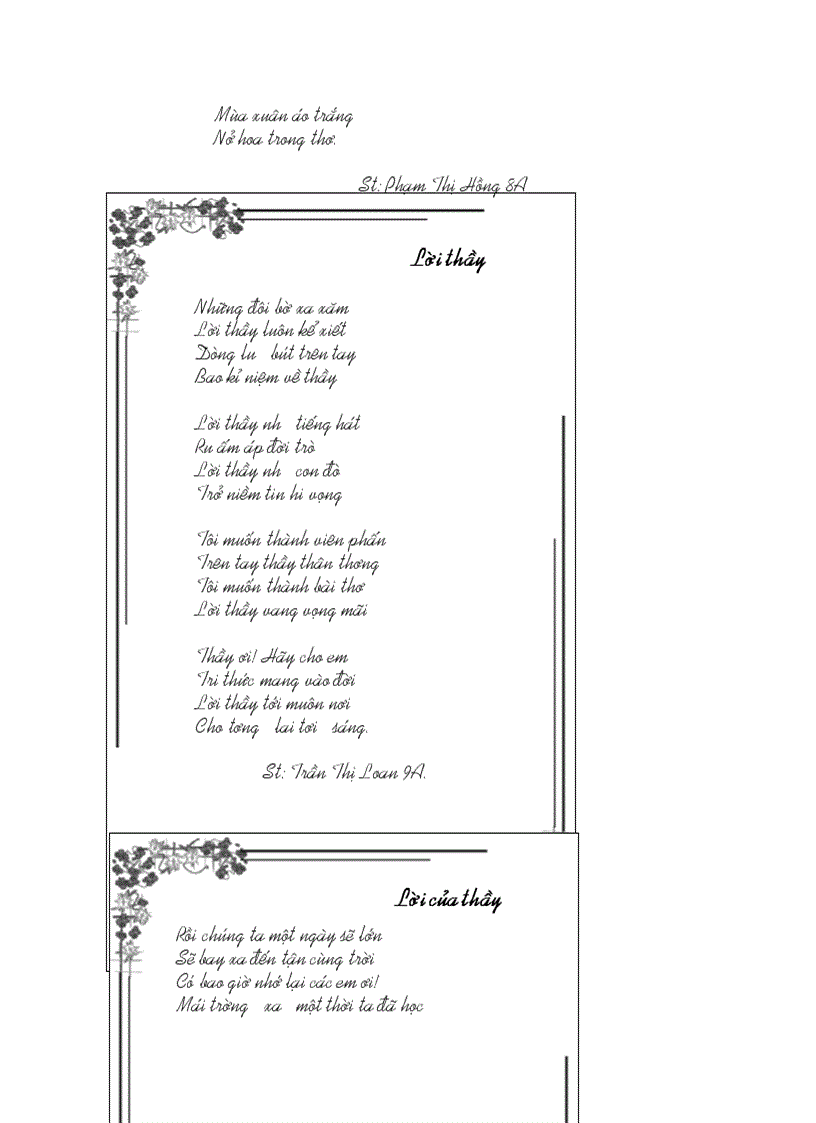 Mùa xuân áo trắng
Nở hoa trong thơ.
St: Phạm Thị Hồng 8A
Lời thầy
Những đôi bờ xa xăm
Lời thầy luôn kể xiết
Dòng lu bút trên tay
Bao kỉ niệm về thầy
Lời thầy nh tiếng hát
Ru ấm áp đời trò
Lời thầy nh con đò
Trở niềm tin hi vọng
Tôi muốn thành viên phấn
Trên tay thầy thân thơng
Tôi muốn thành bài thơ
Lời thầy vang vọng mãi
Thầy ơi! Hãy cho em
Tri thức mang vào đời
Lời thầy tới muôn nơi
Cho tơng lai tơi sáng.
St: Trần Thị Loan 9A.
Lời của thầy
Rồi chúng ta một ngày sẽ lớn
Sẽ bay xa đến tận cùng trời
Có bao giờ nhớ lại các em ơi!
Mái trờng xa một thời ta đã học